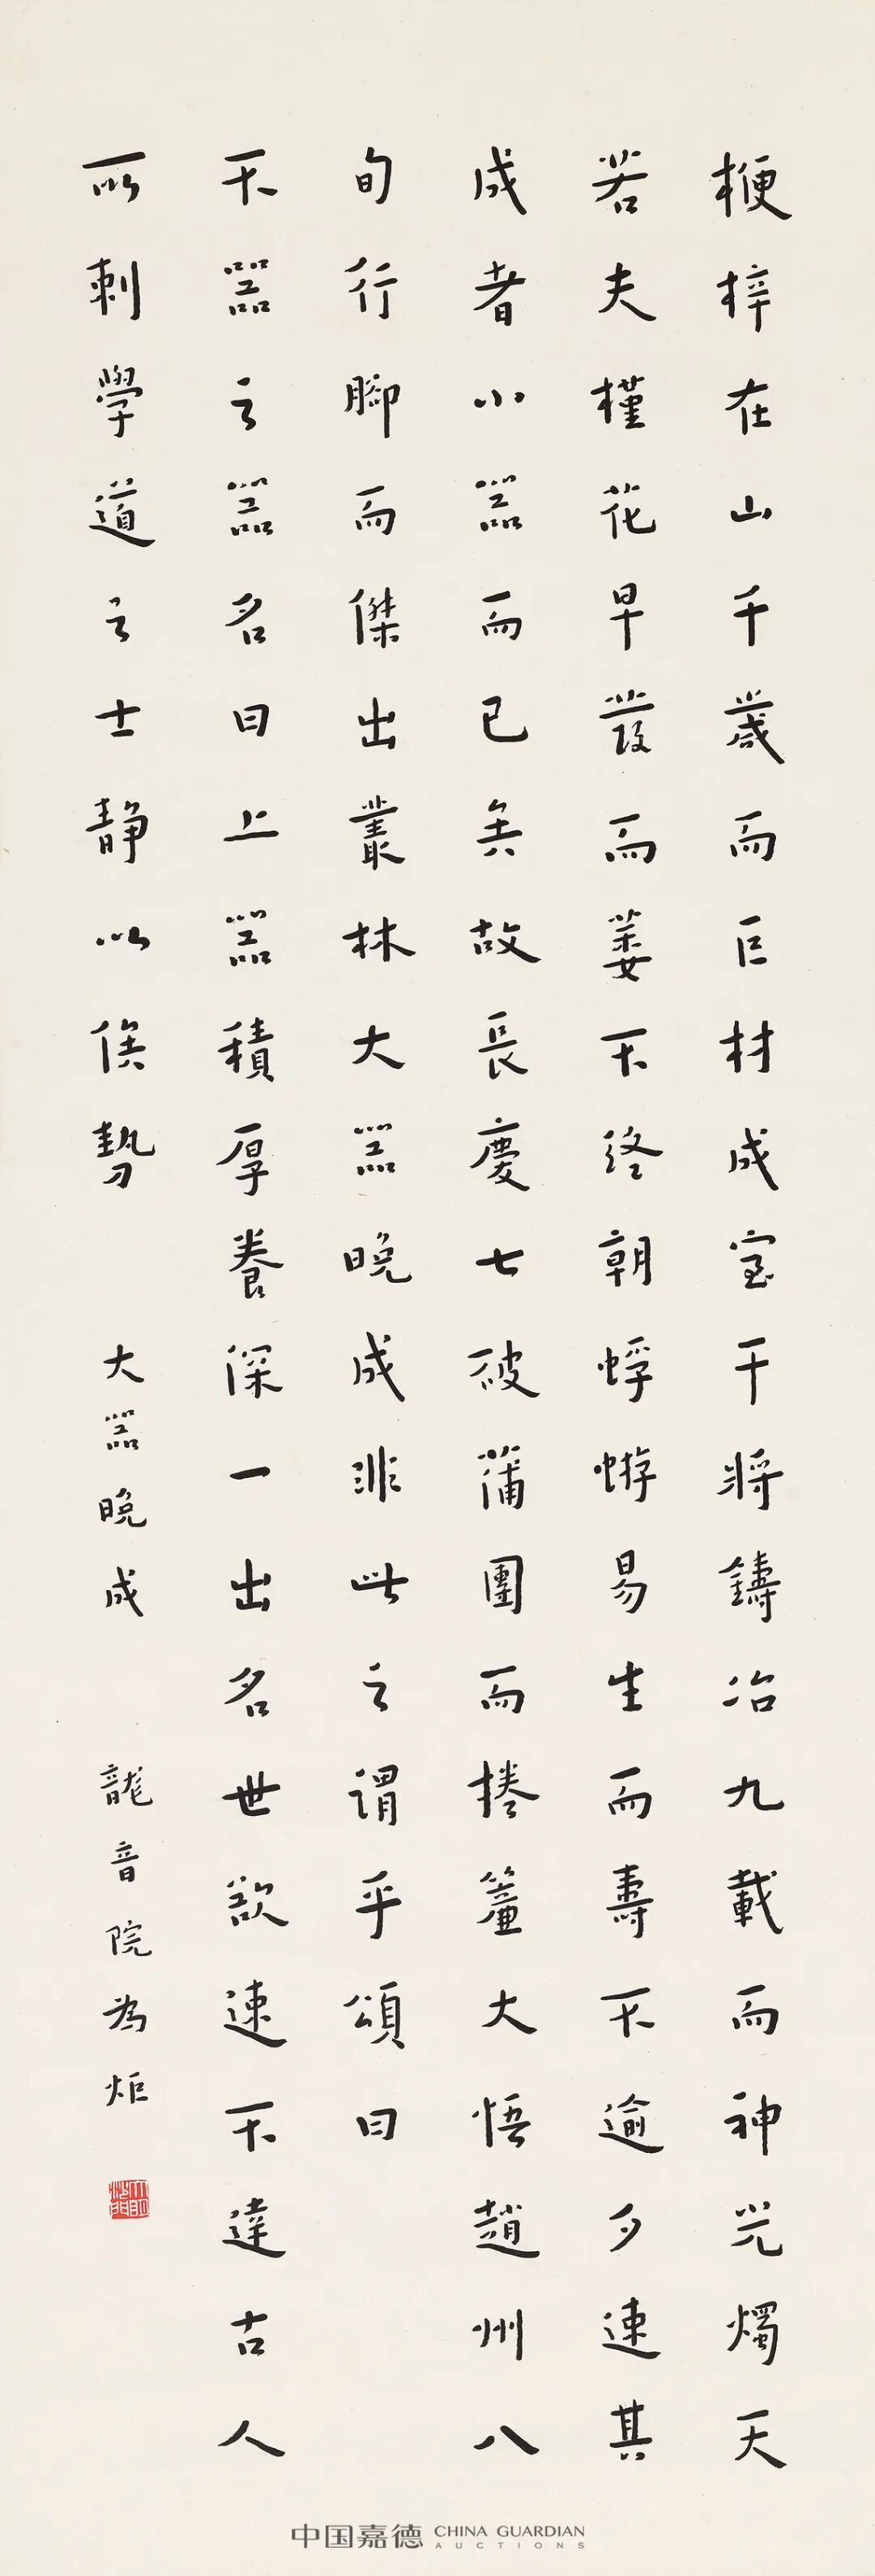 楩梓在山千歲而巨材成室干將鑄冶九載而神光燭天
若夫槿花早發而萎不終朝蜉蝣易生而壽不逾夕速其
成者小器而已矣故長慶七破蒲團而捲簾大悟趙州八
旬行腳而傑出叢林大器晚成非此之謂乎頌曰
不器之器名曰上器積厚養深一出名世欲速不達古人
所刺學道之士静以俟勢 大器晚成 龍音院為炬
中国嘉德 CHINA GUARDIAN AUCTIONS